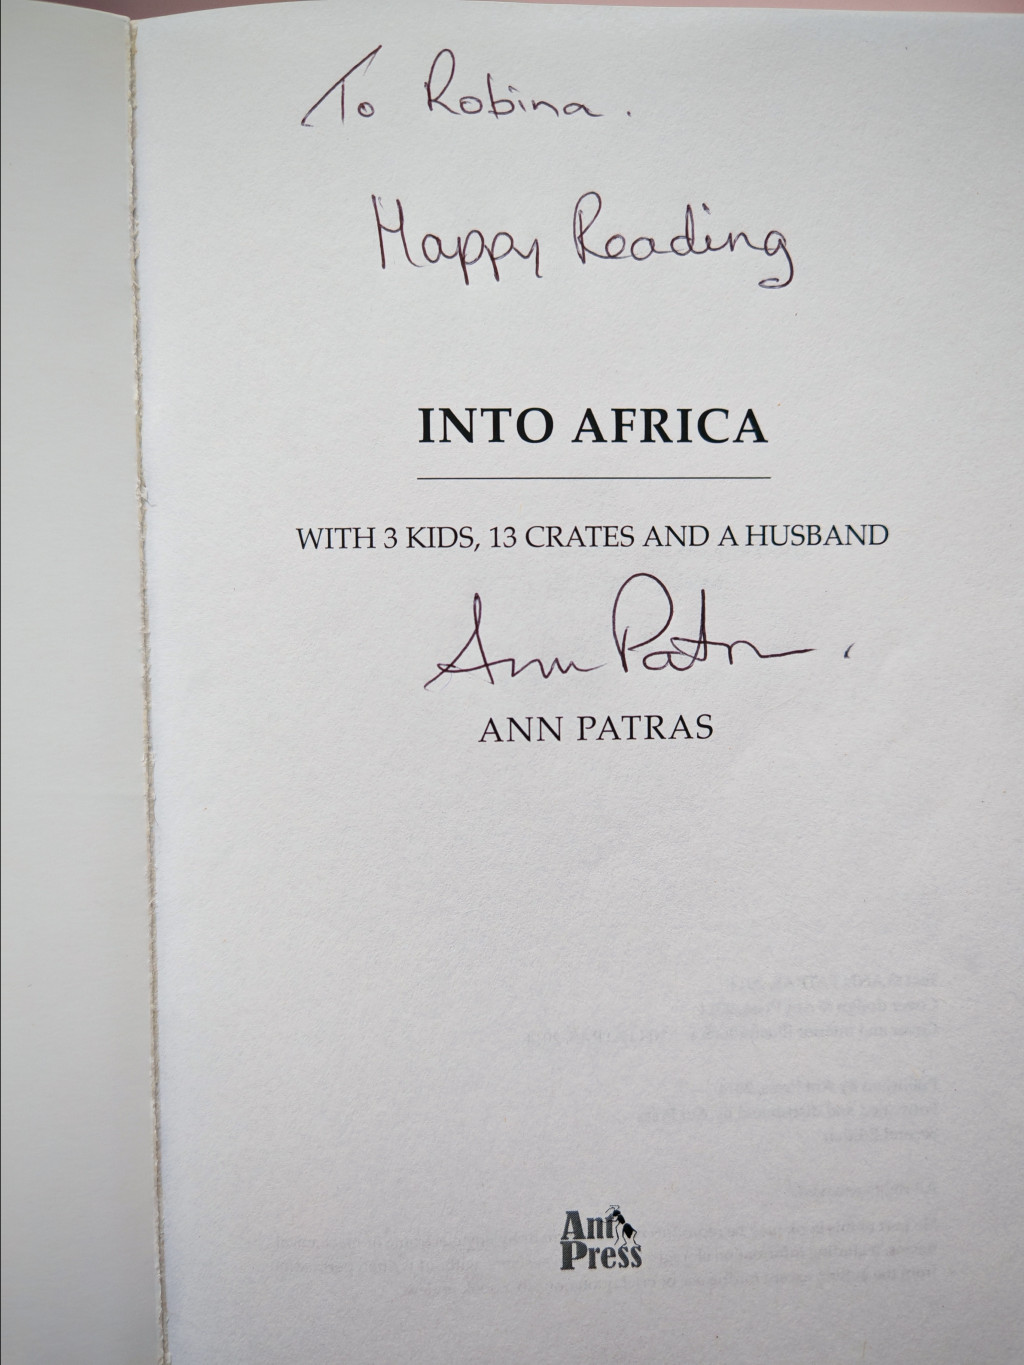 To Robina.
Happy Reading
INTO AFRICA
WITH 3 KIDS, 13 CRATES AND A HUSBAND
Ann Patras.
ANN PATRAS
Ant
Press